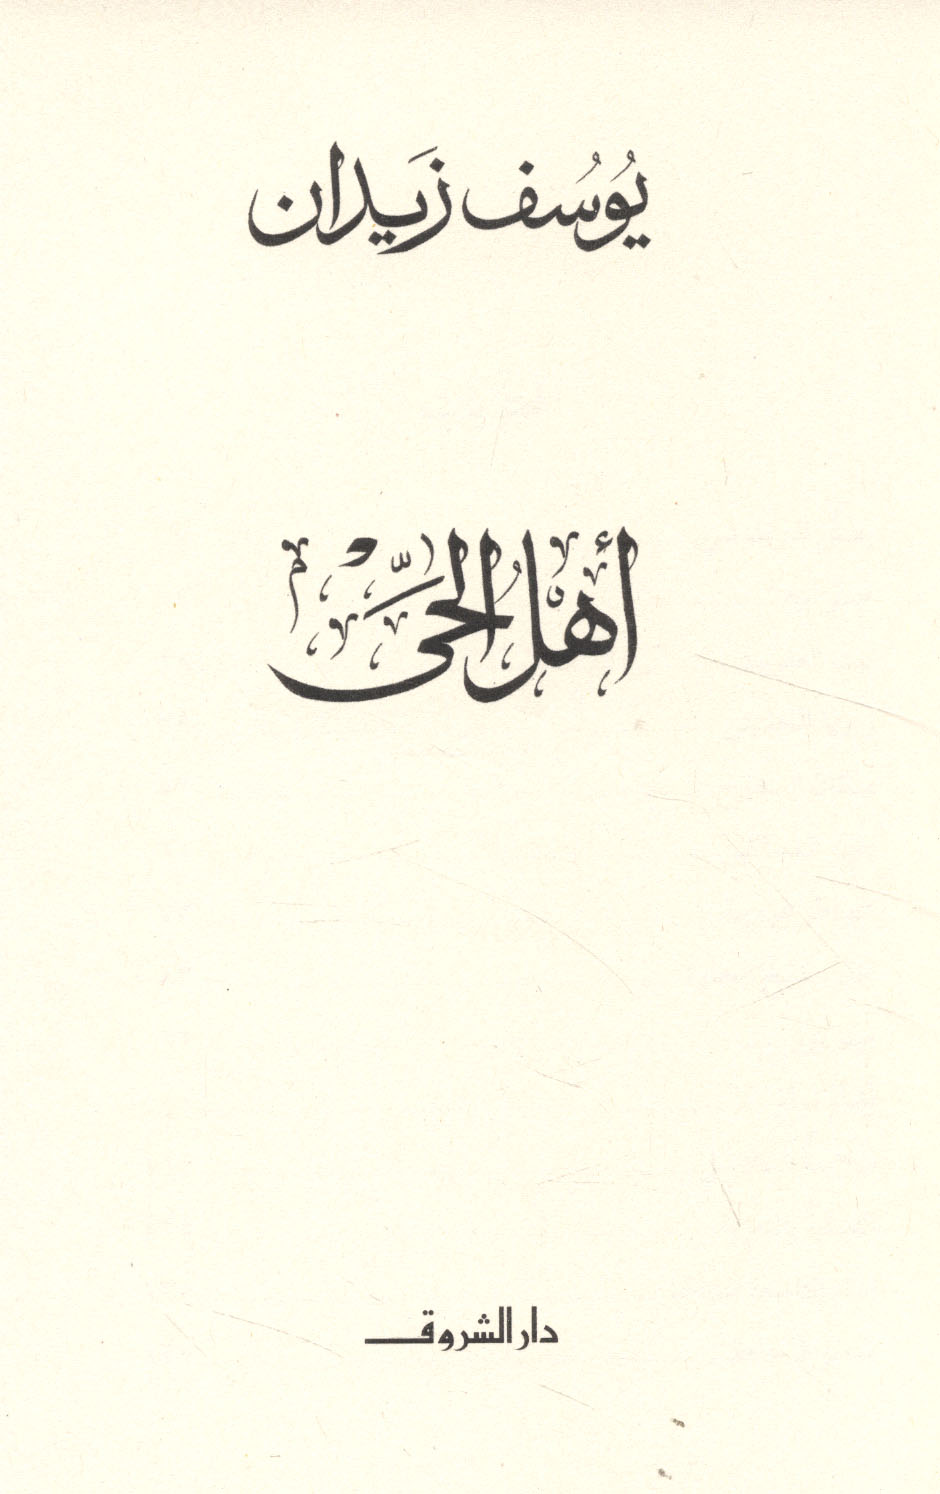 يُوسُف زَيدان
أهل الحى
دار الشروق